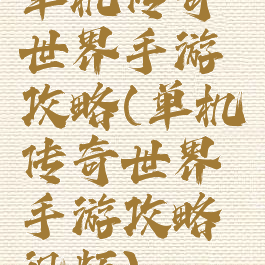 单机传奇
世界手游
攻略(单机
传奇世界
手游攻略
视频)